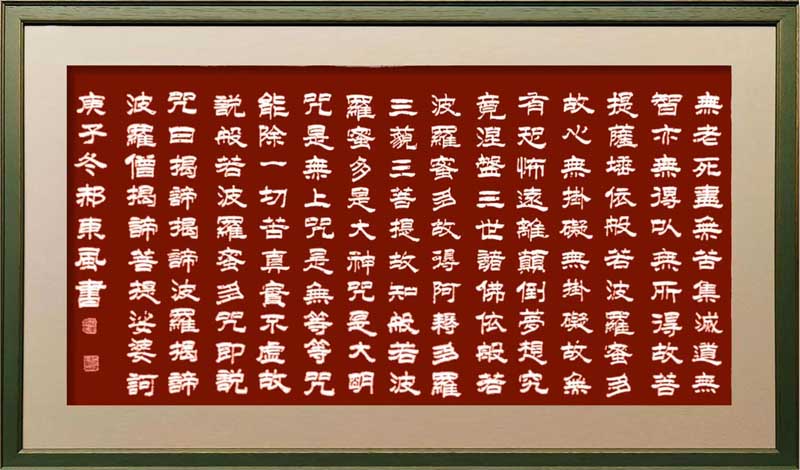 無老死盡無苦集滅道無
智亦無得以無所得故菩
提薩埵依般若波羅蜜多
故心無掛礙無掛礙故無
有恐怖遠離顛倒夢想究
竟涅盤三世諸佛依般若
波羅蜜多故得阿耨多羅
三藐三菩提故知般若波
羅蜜多是大神咒是大明
咒是無上咒是無等等咒
能除一切苦真實不虛故
說般若波羅蜜多咒即説
咒曰揭諦揭諦波羅揭諦
波羅僧揭諦菩提娑婆訶
庚子冬郝東風書